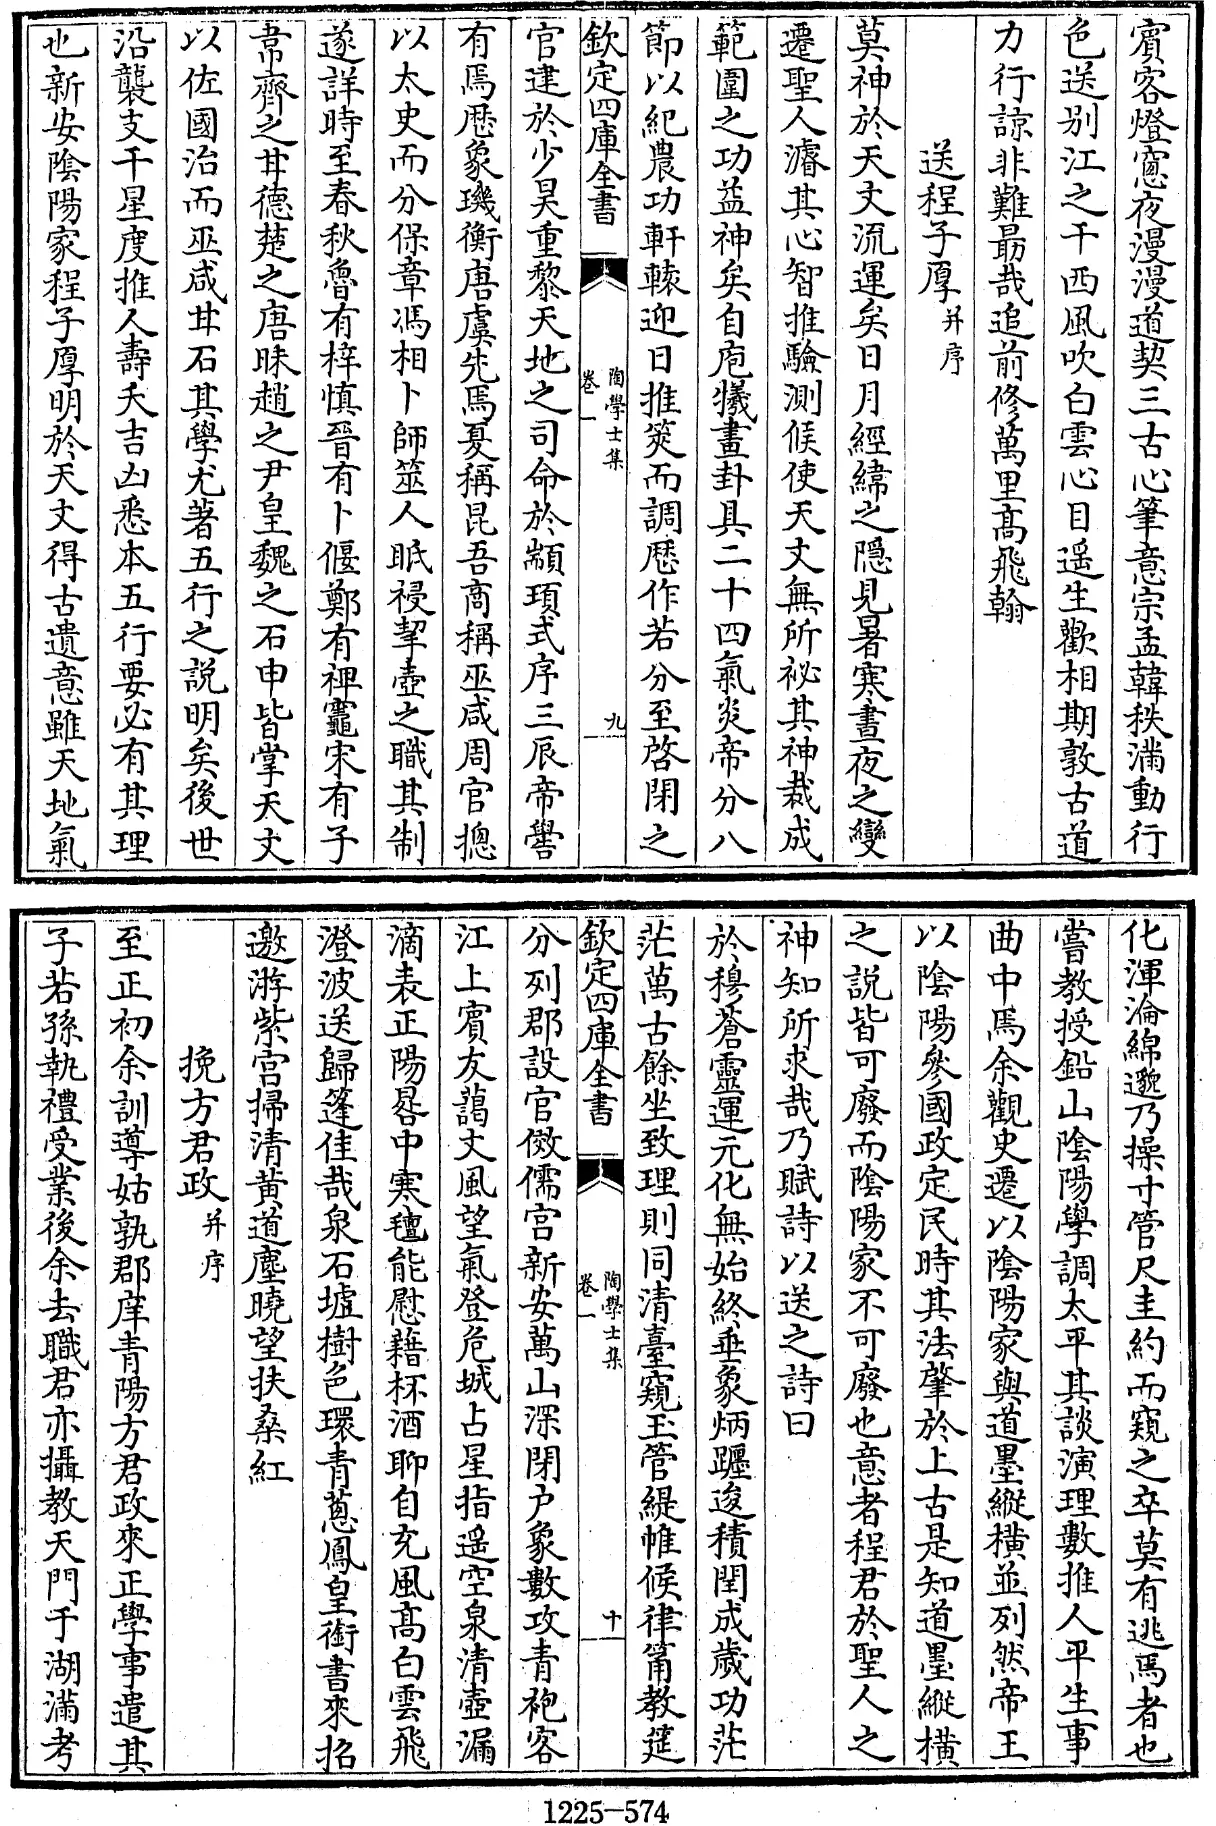 賔客燈窻夜漫漫道契三古心筆意宗孟韓秩滿動行
色送别江之干西風吹白雲心目遥生歡相期敦古道
力行諒非難勗哉追前修萬里髙飛翰
送程子厚并序
莫神於天文流運矣日月經緯之隱見暑寒晝夜之變
遷聖人濬其心智推驗測候使天文無所祕其神裁成
範圍之功益神矣自庖犧畫卦具二十四氣炎帝分八
節以紀農功軒轅迎日推筴而調厯作若分至啓閉之
欽定四庫全書
陶學士集
卷一
九
官建於少昊重黎天地之司命於顓頊式序三辰帝嚳
有焉厯象璣衡唐虞先焉夏稱昆吾商稱巫咸周官摠
以太史而分保章馮相卜師筮人眂祲挈壺之職其制
遂詳時至春秋魯有梓慎晉有卜偃鄭有裨竈宋有子
韋齊之甘德楚之唐昧趙之尹皇魏之石申皆掌天文
以佐國治而巫咸甘石其學尤著五行之説明矣後世
沿襲支干星度推人壽夭吉凶悉本五行要必有其理
也新安陰陽家程子厚明於天文得古遺意雖天地氣
化渾淪綿邈乃操寸管尺圭約而窺之卒莫有逃焉者也
嘗教授鉛山陰陽學調太平其談演理數推人平生事
曲中焉余觀史遷以陰陽家與道墨縱横並列然帝王
以陰陽參國政定民時其法肇於上古是知道墨縱横
之説皆可廢而陰陽家不可廢也意者程君於聖人之
神知所求哉乃賦詩以送之詩曰
於穆蒼靈運元化無始終垂象炳躔逡積閏成歲功茫
茫萬古餘坐致理則同清臺窺玉管緹帷候律筩教筵
欽定四庫全書
陶學士集
卷一
十
分列郡設官傚儒宫新安萬山深閉户象數攻青袍客
江上賔友藹文風望氣登危城占星指遥空泉清壺漏
滴表正陽晷中寒氊能慰藉杯酒聊自充風髙白雲飛
澄波送歸篷佳哉泉石墟樹色環青葱鳳皇銜書來招
邀游紫宫掃清黄道塵曉望扶桑紅
挽方君政并序
至正初余訓導姑孰郡庠青陽方君政來正學事遣其
子若孫執禮受業後余去職君亦攝教天門于湖滿考
1225-574